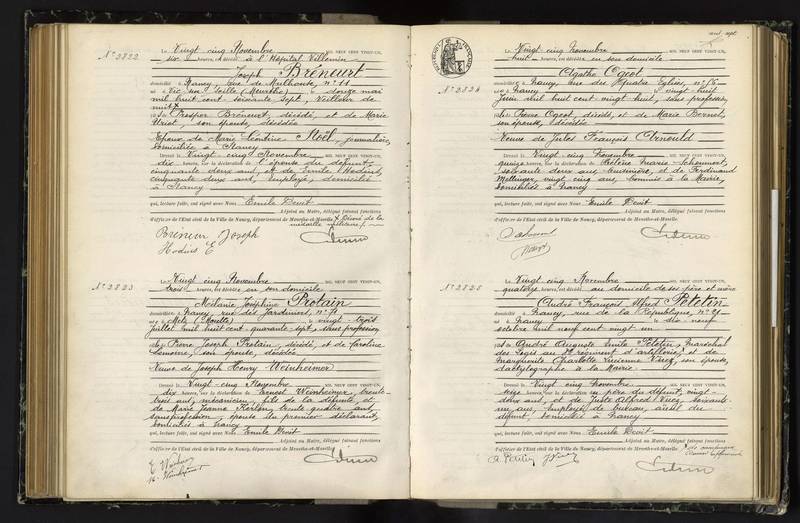 N° 2822
Le Vingt cinq Novembre MIL NEUF CENT VINGT-UN,
six heures, est décédé à l'Hôpital Villemin
Joseph Bréneurt
domicilié à Nancy, rue de Mulhouse, n° 11
né à Vic sur Seille (Meurthe) le douze mai
mil huit cent soixante sept, Veilleur de
nuit x
fils de Prosper Bréneurt, décédé, et de Marie
son épouse, décédée
Epoux de Marie Noël, journalière,
domiciliée à Nancy
Dressé le Vingt-cinq Novembre MIL NEUF CENT VINGT-UN,
dix heures, sur la déclaration de l'épouse du défunt,
cinquante deux ans, et de Emile Hodiné,
cinquante deux ans, employé, domiciliés
à Nancy
qui, lecture faite, ont signé avec Nous Emile Devit
Adjoint au Maire, délégué faisant fonctions
d'officier de l'État civil de la Ville de Nancy, département de Meurthe-et-Moselle. x Décoré de la
médaille militaire
Joseph
Hodiné E
N° 2823
Le Vingt cinq Novembre MIL NEUF CENT VINGT-UN,
trois heures, est décédée en son domicile
Mélanie Joséphine Protain
domiciliée à Nancy, rue des Jardiniers, n° 71
née à Metz (Moselle) le vingt-trois
juillet mil huit cent quarante-sept, sans profession,
fille de Pierre Joseph Protain, décédé, et de Caroline
Lemoine, son épouse, décédée
Veuve de Joseph Henry Weinheimer
Dressé le Vingt-cinq Novembre MIL NEUF CENT VINGT-UN,
dix heures, sur la déclaration de Ernest Weinheimer, trente-
trois ans, mécanicien, fils de la défunte, et
de Marie Jeanne trente-quatre ans,
sans profession, épouse du premier déclarant,
domiciliés à Nancy
qui, lecture faite, ont signé avec Nous Emile Devit
Adjoint au Maire, délégué faisant fonctions
d'officier de l'État civil de la Ville de Nancy, département de Meurthe-et-Moselle.
N° 2824
Le Vingt cinq Novembre MIL NEUF CENT VINGT-UN,
huit heures, est décédée en son domicile
Agathe Ogeot
domiciliée à Nancy, rue des Quatre Eglises, n°
née à Nancy le vingt huit
Juin mil huit cent vingt huit, sans profession,
fille de Pierre Ogeot, décédé, et de Marie
son épouse, décédée
Veuve de Jules François Arnould
Dressé le Vingt-cinq Novembre MIL NEUF CENT VINGT-UN,
quinze heures, sur la déclaration de
soixante deux ans, et de Ferdinand
vingt cinq ans, commis à la Mairie,
domiciliés à Nancy
qui, lecture faite, ont signé avec Nous Emile Devit
Adjoint au Maire, délégué faisant fonctions
d'officier de l'État civil de la Ville de Nancy, département de Meurthe-et-Moselle.
N° 2825
Le Vingt cinq Novembre MIL NEUF CENT VINGT-UN,
quatorze heures, est décédé au domicile de ses père et mère
André François Alfred Petetin
domicilié à Nancy, rue de la République, n° 21
né à Nancy le dix-neuf
octobre mil neuf cent vingt un
fils de André Auguste Emile Petetin, Maréchal
des logis au régiment d'artillerie, et de
Marguerite Charlotte Lucienne son épouse,
dactylographe à la Mairie
Dressé le Vingt cinq Novembre MIL NEUF CENT VINGT-UN,
seize heures, sur la déclaration du père du défunt, vingt-
deux ans, et de Alfred soixante
un ans, employé de bureau, aïeul du
défunt, domiciliés à Nancy
qui, lecture faite, ont signé avec Nous Emile Devit
Adjoint au Maire, délégué faisant fonctions
d'officier de l'État civil de la Ville de Nancy, département de Meurthe-et-Moselle.